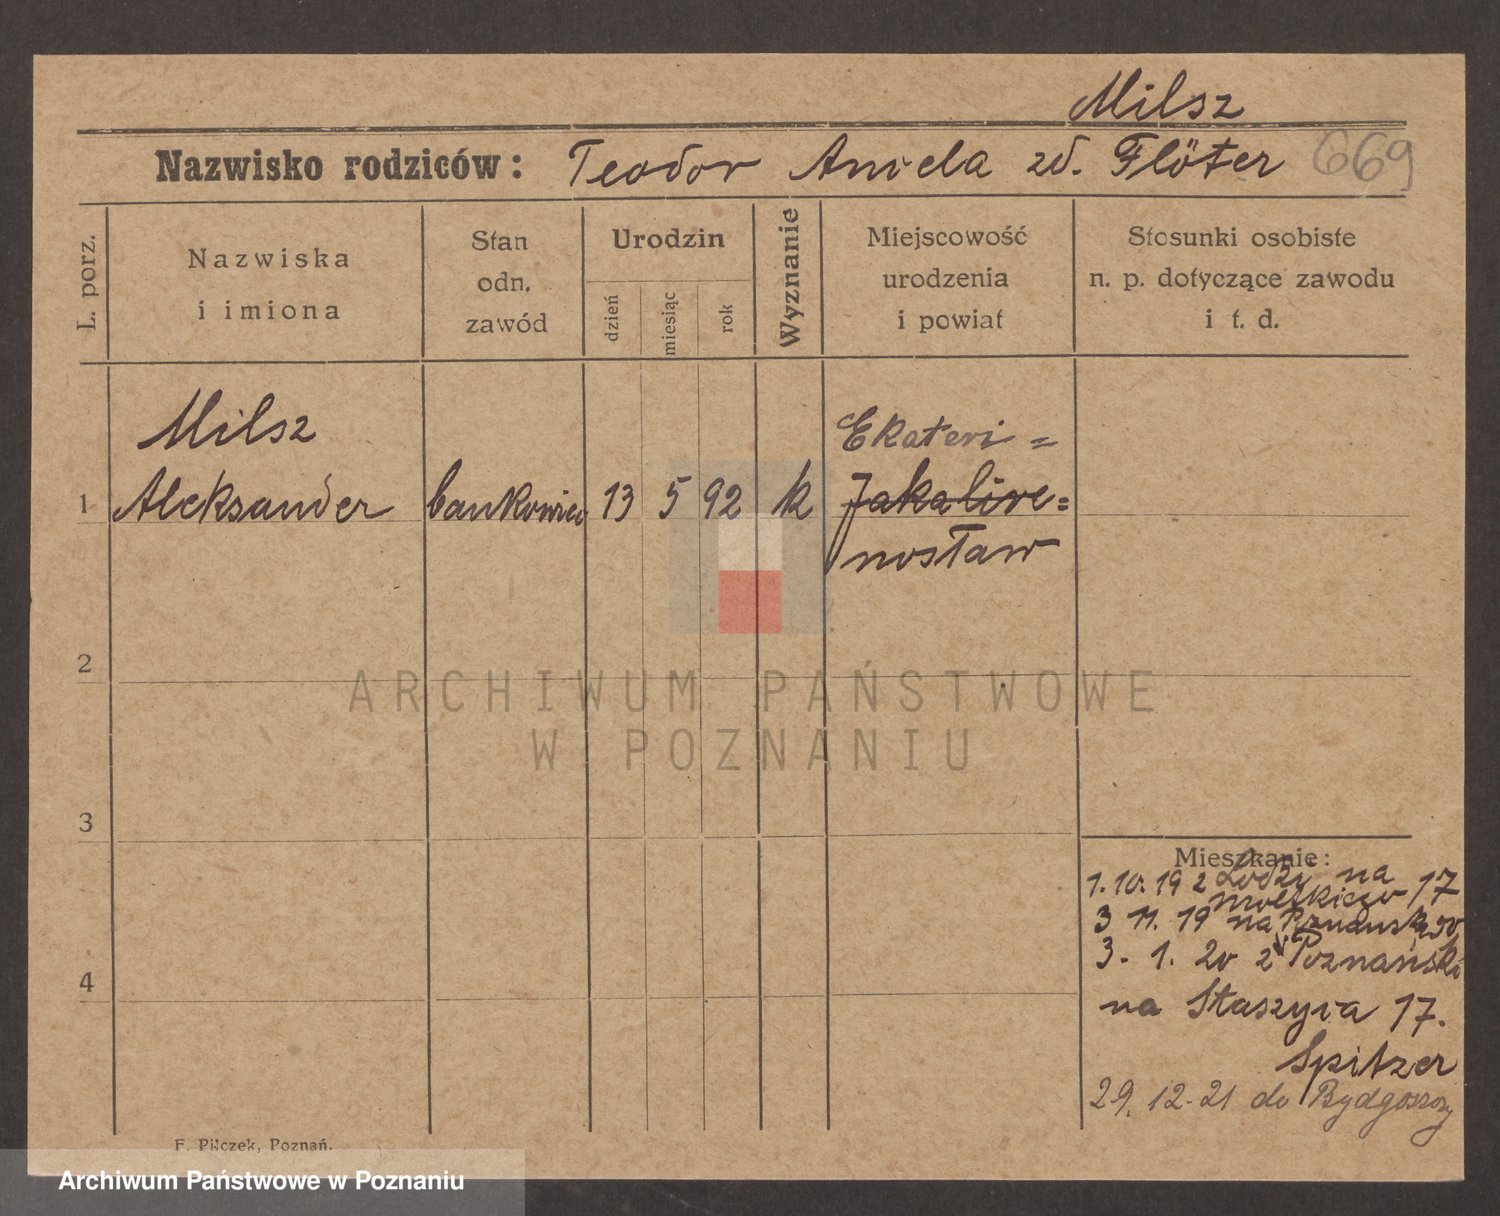 Milsz
Nazwisko rodziców: Teodor Aniela zd. Flöter 669
L. porz.
Nazwiska
i imiona
Stan
odn.
zawód
Urodzin
dzień
miesiąc
rok
Wyznanie
Miejscowość
urodzenia
i powiat
Stosunki osobiste
n. p. dotyczące zawodu
i t. d.
Milsz
Ekateri=
1 Aleksander bankowiec 13 5 92 k Jakaline=
nosław
2
3
4
ARCHIWUM PAŃSTWOWE
W POZNANIU
Mieszkanie:
1. 10. 19 z Łodzi na
17
3 11. 19 na
3. 1. 20 z Poznański
na Staszyca 17.
Spitzer
29. 12. 21 do Bydgoszczy
F. Pilczek, Poznań.
Archiwum Państwowe w Poznaniu